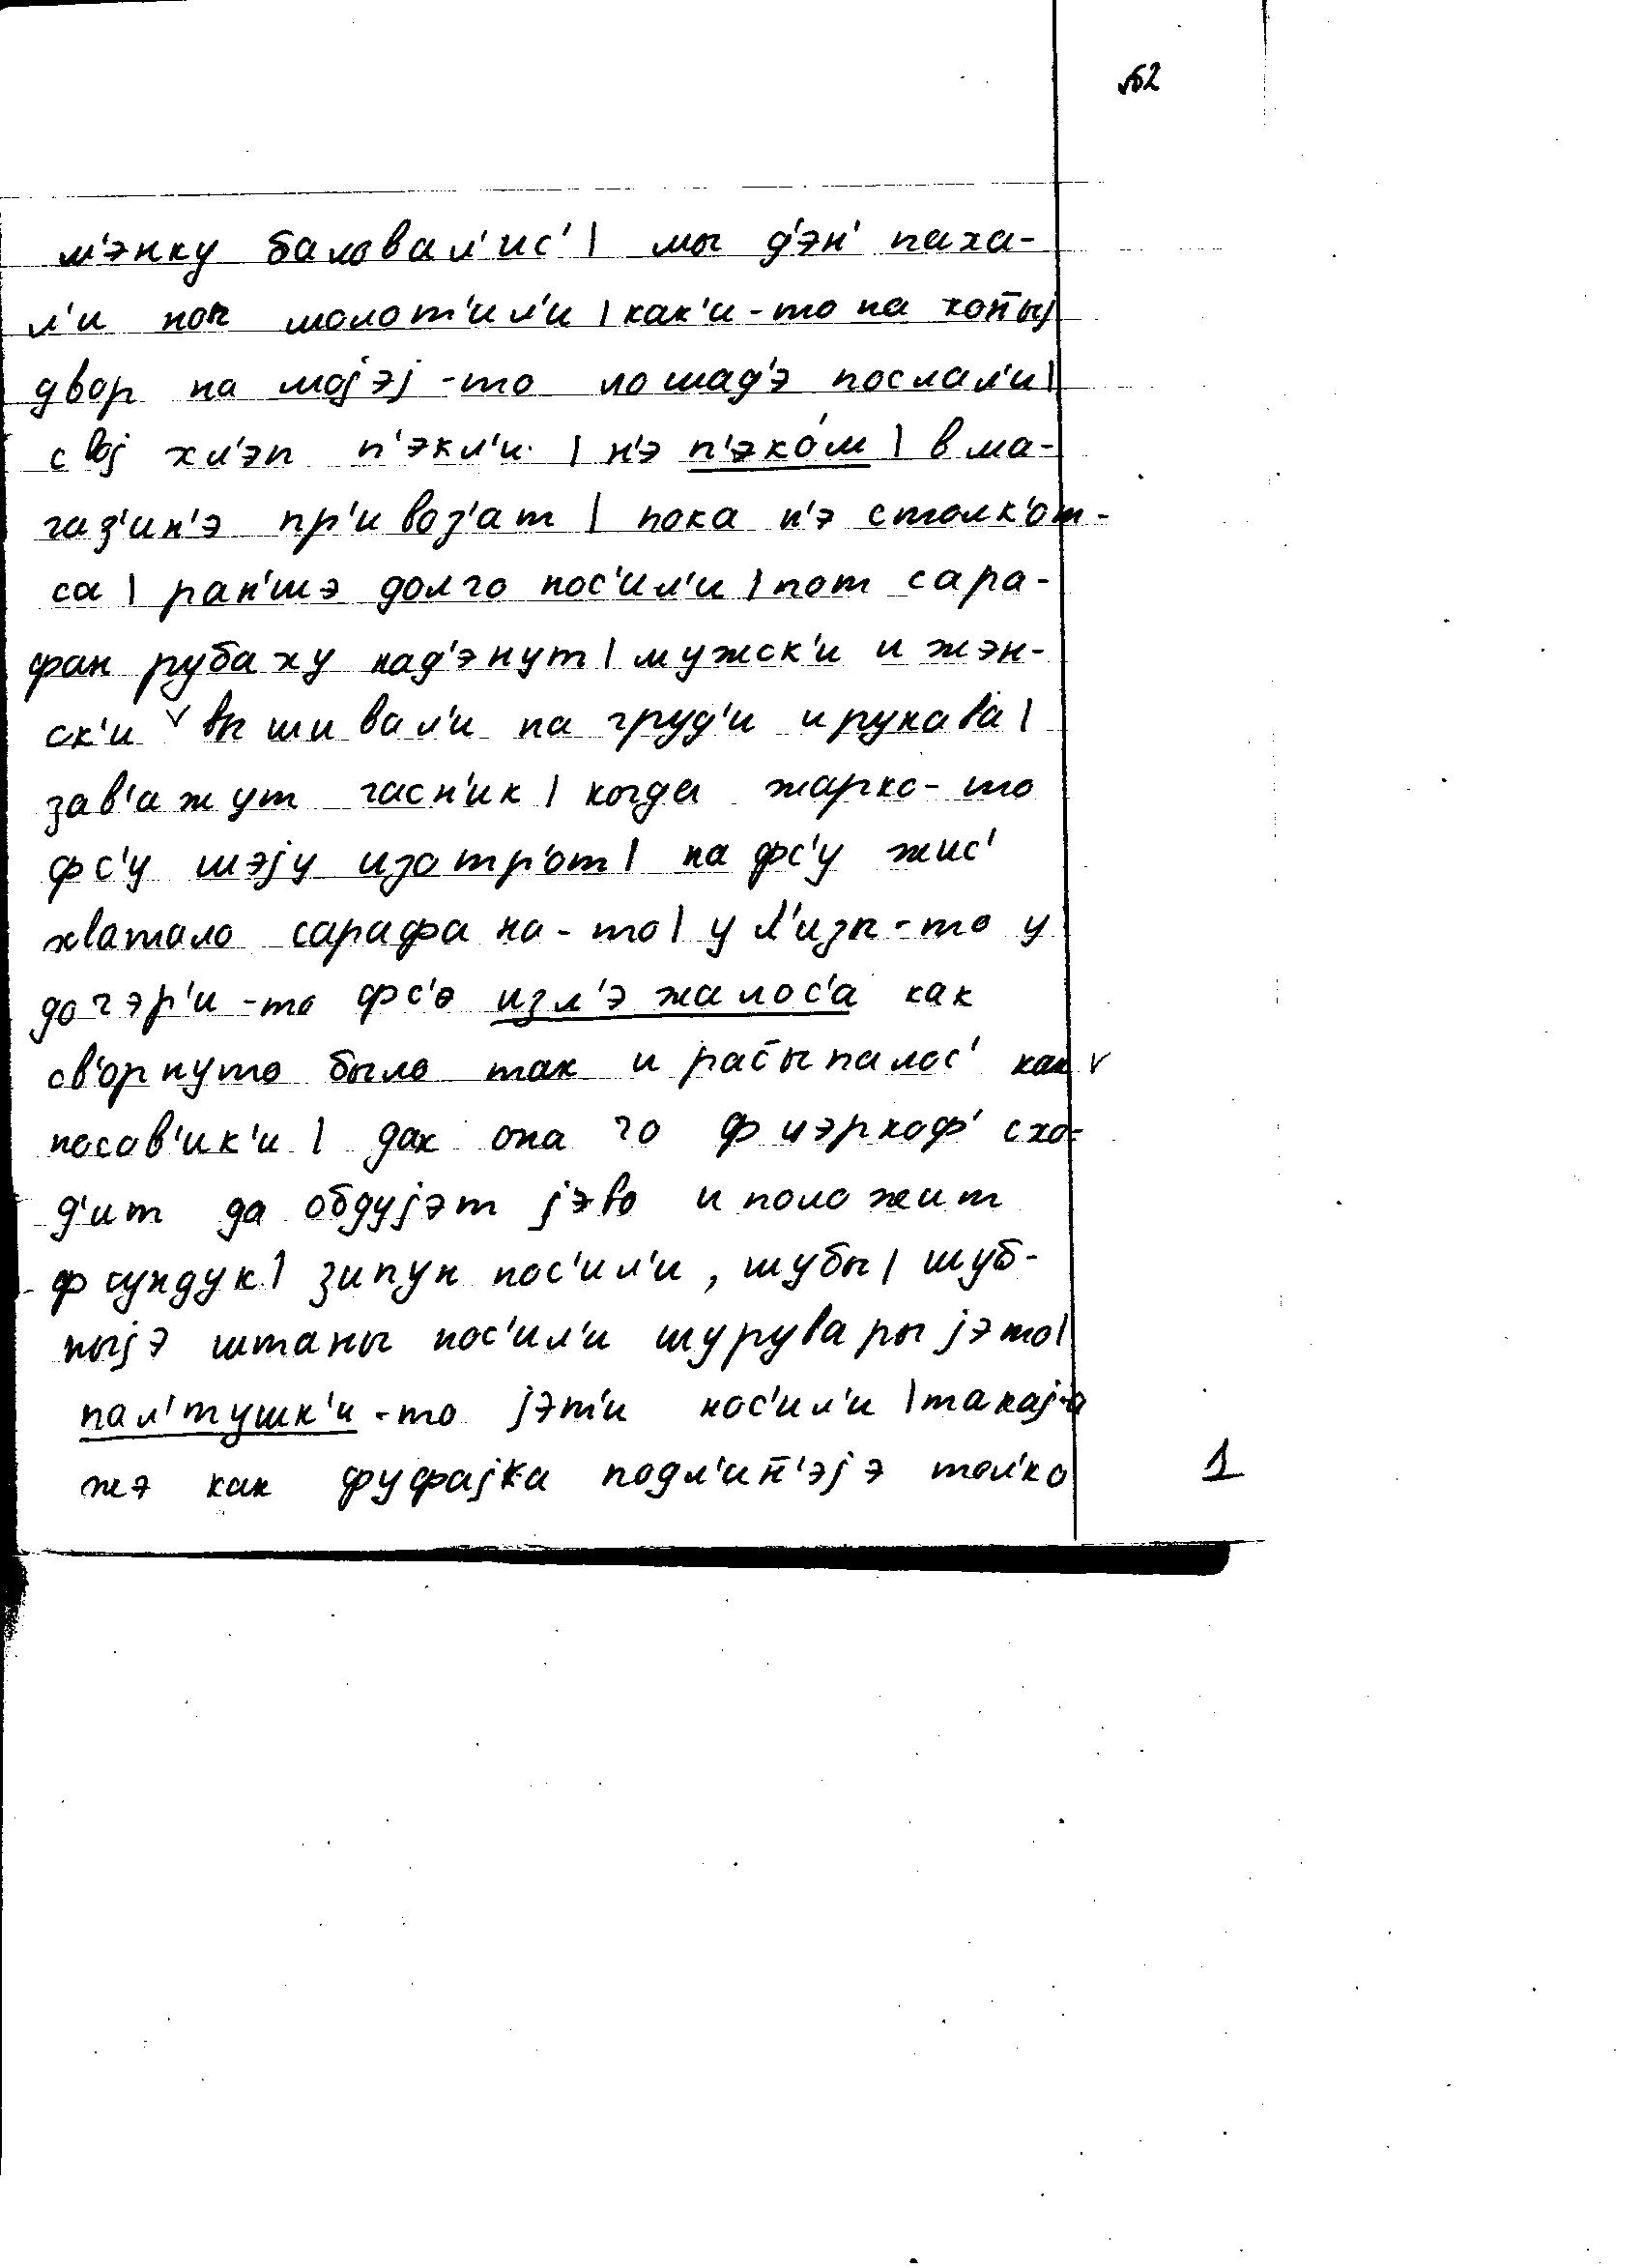 №2
м'энку баловал'ис' | мы д'эн' паха-
л'и ноч молот'ил'и | как'и-то на кон̄ыj
двор на моjэj-то лошад'э послал'и |
своj хл'эп п'экл'и | н'э п'эко́м | в ма-
газ'ин'э пр'ивоз'ат | пока н'э столк'от-
са | ран'шэ долго нос'ил'и | пот сара-
фан рубаху над'энут | мужск'и и жэн-
ск'и ˅ вышивал'и на груд'и и рукава |
зав'ажут гасн'ик | когда жарко-то
фс'у шэjу изотр'от | на фс'у жис'
хватало сарафана-то | у Л'изы-то у
дочэр'и-то фс'о изл'эжалос'а как
св'орнуто было так и рас̄ыпалос' как ˅
носов'ик'и | дак она го ф цэркоф' схо-
д'ит да обдуjэт jэво и положит
ф сундук | зипун нос'ил'и, шубы | шуб-
ныjэ штаны нос'ил'и шурувары jэто |
пал'тушк'и-то jэт'и нос'ил'и | такаj-а
жэ как фуфаjка подл'ин̄'эjэ тол'ко
1